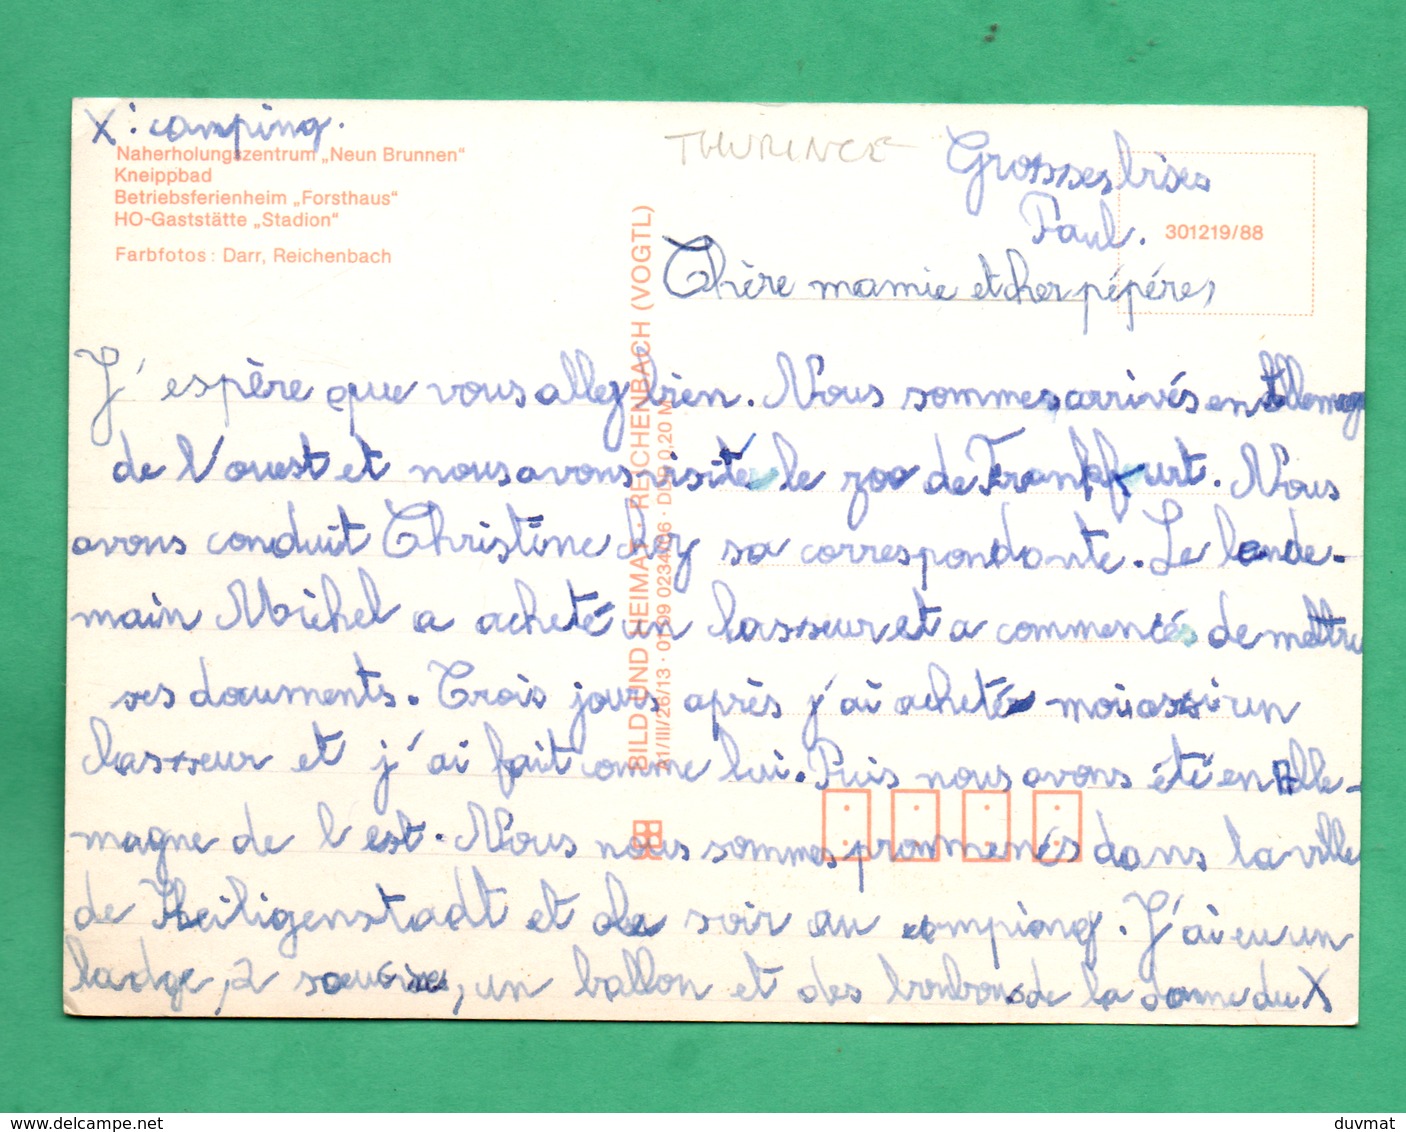 X : camping.
Naherholungszentrum „Neun Brunnen“
Kneippbad
Betriebsferienheim „Forsthaus“
HO-Gaststätte „Stadion“
Farbfotos: Darr, Reichenbach
THURINGE
Grosses bises
Paul.
301219/88
Chère mamie et cher pépéres,
J'espère que vous allez bien. Nous sommes arrivés en Allemagne
de l'ouest et nous avons visité le zoo de Frankfurt. Nous
avons conduit Christine chez sa correspondante. Le lende-
main Michel a acheté un classeur et a commencés de mettre
ses documents. Trois jours après j'ai acheté moi aussi un
classeur et j'ai fait comme lui. Puis nous avons été en Alle-
magne de l'est. Nous nous sommes promenés dans la ville
de Heiligenstadt et le soir au camping. J'ai eu un
badge, 2 souris, un ballon et des bonbons de la dame du X
BILD UND HEIMAT · REICHENBACH (VOGTL)
A1/III/26/13 · 01 09 0234/06 · DDR 0,20 M
duvmat
www.delcampe.net